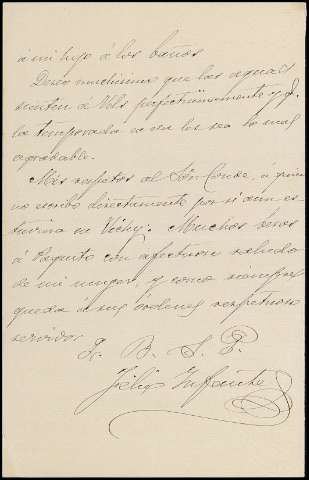 á mi hijo á los baños
Deseo muchísimo que las aguas
sienten á Vds perfectísimamente y q.
la temporada en su les sea lo mas
agradable.
Mis respetos al Sor Conde, á quien
no escribo directamente por si aun es-
tuviera en Vichy. Muchos besos
á Paquito con afectuoso saludo
de mi mujer, y como siempre
queda á sus órdenes respetuoso
servidor
Q. B. S. P.
Félix Infante